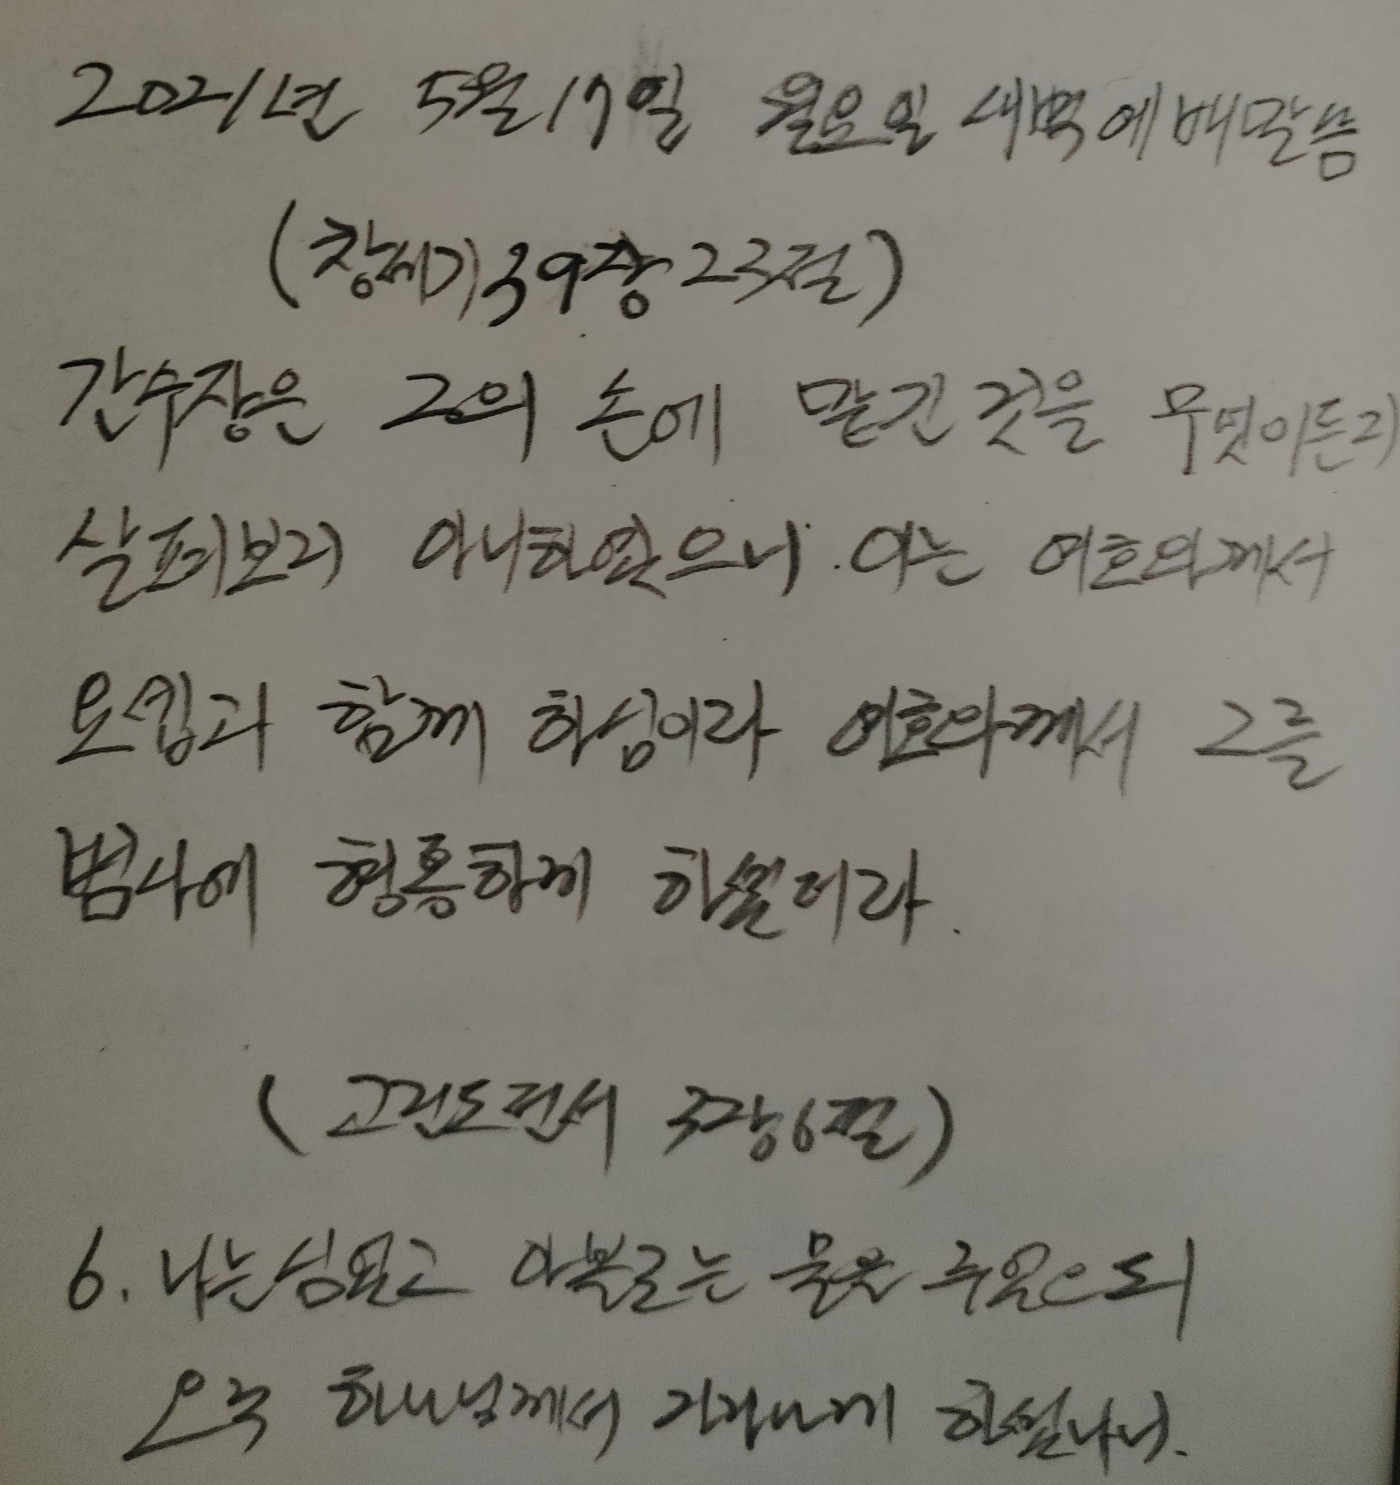 2021년 5월 17일 월요일 새벽예배말씀
(창세기 39장 23절)
간수장은 그의 손에 맡긴 것을 무엇이든지
살펴보지 아니하였으니 이는 여호와께서
요셉과 함께 하심이라 여호와께서 그를
범사에 형통하게 하셨더라.
(고린도전서 3장 6절)
6. 나는 심었고 아볼로는 물을 주었으되
오직 하나님께서 자라나게 하셨나니.